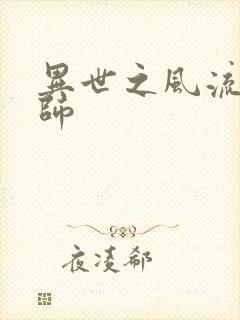 異世之風流
師
夜凌郗